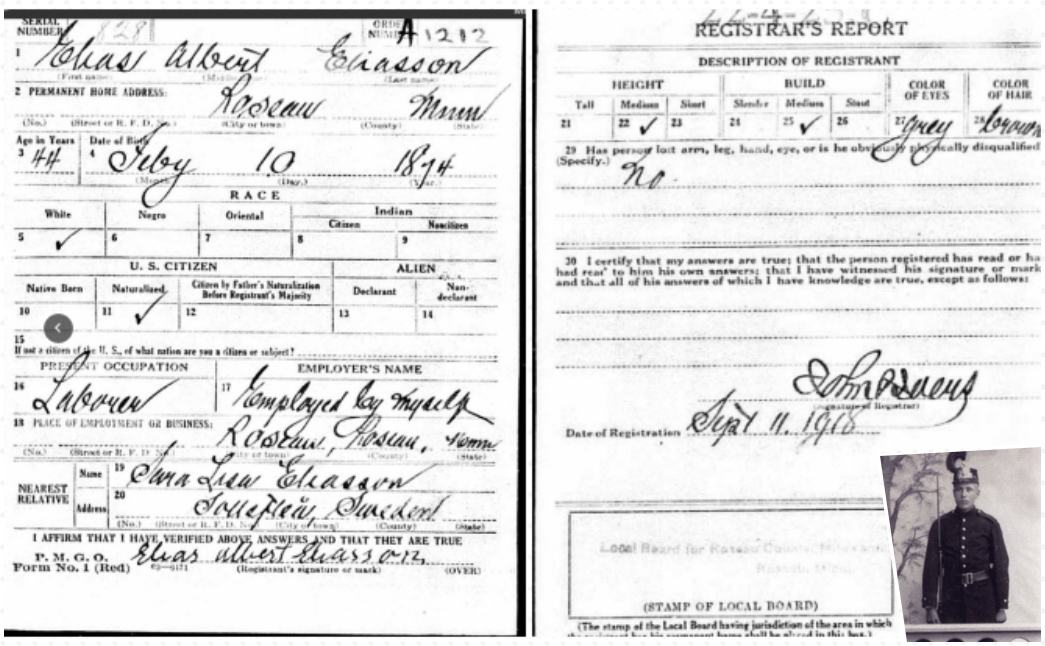 SERIAL NUMBER 828
ORDER NUMBER A1212
1 Elias Albert Eliasson
(First name) (Middle name) (Last name)
2 PERMANENT HOME ADDRESS:
Roseau Minn
(No.) (Street or R. F. D. No.) (City or town) (County) (State)
Age in Years Date of Birth
3 44 4 Feby 10 1874
(Month.) (Day.) (Year.)
RACE
White Negro Oriental Indian
Citizen Noncitizen
5 ✓ 6 7 8 9
U. S. CITIZEN ALIEN
Native Born Naturalized Citizen by Father's Naturalization Before Registrant's Majority Declarant Non-declarant
10 11 ✓ 12 13 14
15
If not a citizen of the U. S., of what nation are you a citizen or subject?
PRESENT OCCUPATION EMPLOYER'S NAME
16 Laborer 17 Employed by myself
18 PLACE OF EMPLOYMENT OR BUSINESS:
Roseau, Roseau, Minn
(No.) (Street or R. F. D. No.) (City or town) (County) (State)
NEAREST RELATIVE
Name 19 Sara Lisa Eliasson
Address 20 Sollefteå, Sweden
(No.) (Street or R. F. D. No.) (City or town) (County) (State)
I AFFIRM THAT I HAVE VERIFIED ABOVE ANSWERS AND THAT THEY ARE TRUE
P. M. G. O.
Form No. 1 (Red) Elias Albert Eliasson
(Registrant's signature or mark) (OVER)
REGISTRAR'S REPORT
DESCRIPTION OF REGISTRANT
HEIGHT BUILD COLOR OF EYES COLOR OF HAIR
Tall Medium Short Slender Medium Stout
21 22 ✓ 23 24 25 ✓ 26 27 grey 28 brown
29 Has person lost arm, leg, hand, eye, or is he obviously physically disqualified
(Specify.) no.
30 I certify that my answers are true; that the person registered has read or ha
had read to him his own answers; that I have witnessed his signature or mark
and that all of his answers of which I have knowledge are true, except as follows:
(Signature of Registrar)
Date of Registration Sept 11. 1918
Local Board for Roseau County, Minnesota
Roseau, Minn.
(STAMP OF LOCAL BOARD)
(The stamp of the Local Board having jurisdiction of the area in which
the registrant has his permanent home shall be placed in this box.)